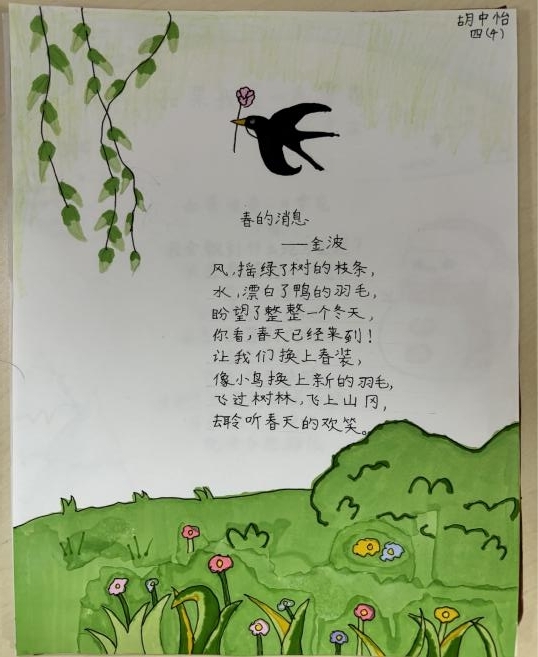 胡中怡
四(4)
春的消息
——金波
风,摇绿了树的枝条,
水,漂白了鸭的羽毛,
盼望了整整一个冬天,
你看,春天已经来到!
让我们换上春装,
像小鸟换上新的羽毛,
飞过树林,飞上山冈,
去聆听春天的欢笑。